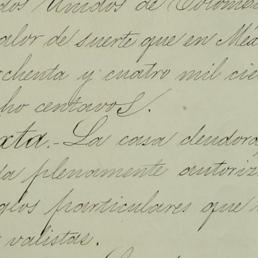 dos Unidos de Colombia
valor de suerte que en Méx
ochenta y cuatro mil cie
cho centavos.
xta.- La casa deudora
da plenamente autoriz
glos particulares que
valistas.